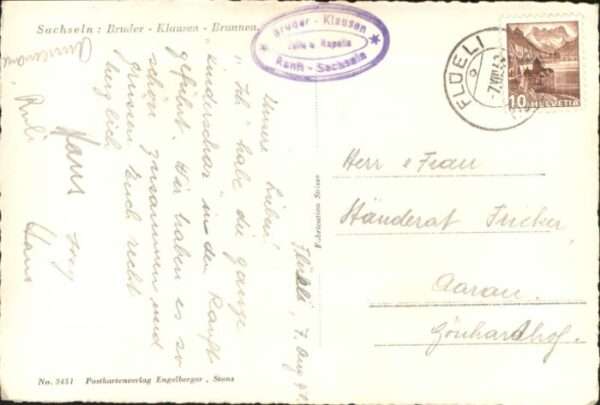 Sachseln: Bruder - Klausen - Brunnen.
Bruder - Klausen
Zelle u. Kapelle
Ranft - Sachseln
FLÜELI
10 HELVETIA
Flüeli, 7. Aug.
Meine Lieben!
"Ich habe die ganze
"Kinderschar" in den Ranft
geführt. Wir haben es so
schön zusammen und
grüssen Euch recht
herzlich
Hans
Ruli
Hans
Herr & Frau
Ständerat Fricker,
Aarau.
Gönhardhof.
No. 5451 Postkartenverlag Engelberger, Stans